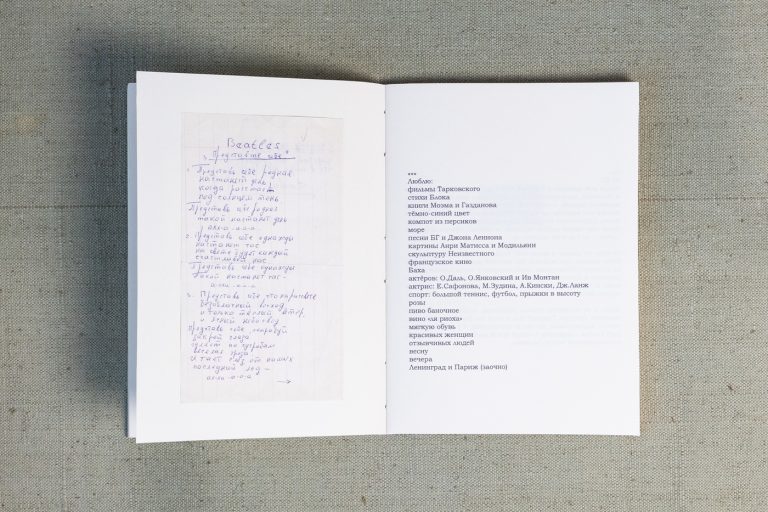 Beatles
"Представь себе"
1. Представь себе родная
настанет день
когда растает
под солнцем тень.
Представь себе родная
такой настанет день
алла-а-а-а.
2. Представь себе однажды
настанет час
на свете будет каждый
счастливей нас
Представь себе однажды
Такой настанет час-
3. Представь себе
безоблачный восход
и только тёплый ветер,
и ясный небосвод
Представь себе
закрой глаза
весёлая гроза
И тает
последний лёд -
***
Люблю:
фильмы Тарковского
стихи Блока
книги Моэма и Газданова
тёмно-синий цвет
компот из персиков
море
песни БГ и Джона Леннона
картины Анри Матисса и Модильяни
скульптуру Неизвестного
французское кино
Баха
актёров: О.Даль, О.Янковский и Ив Монтан
актрис: Е.Сафоновь, М.Зудина, А.Кински, Дж.Ланж
спорт: большой теннис, футбол, прыжки в высоту
розы
пиво баночное
вино «ля риоха»
мягкую обувь
красивых женщин
отзывчивых людей
весну
вечера
Ленинград и Париж (заочно)